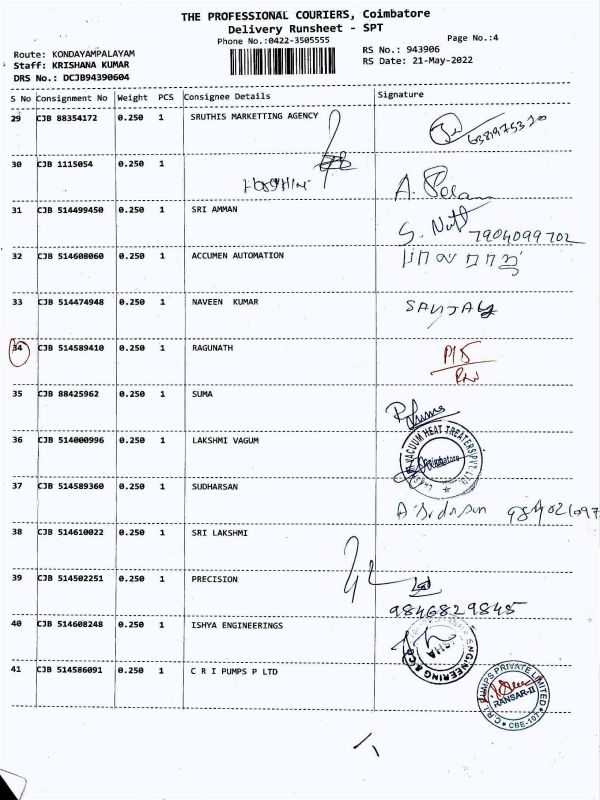 THE PROFESSIONAL COURIERS, Coimbatore
Delivery Runsheet - SPT
Phone No.:0422-3505555
Page No.:4
Route: KONDAYAMPALAYAM
RS No.: 943906
Staff: KRISHANA KUMAR
RS Date: 21-May-2022
DRS No.: DCJB94390604
S No Consignment No Weight PCS Consignee Details Signature
29 CJB 88354172 0.250 1 SRUTHIS MARKETTING AGENCY
30 CJB 1115054 0.250 1
31 CJB 514499450 0.250 1 SRI AMMAN
7904099702
32 CJB 514608060 0.250 1 ACCUMEN AUTOMATION
33 CJB 514474948 0.250 1 NAVEEN KUMAR SANJAY
34 CJB 514589410 0.250 1 RAGUNATH
35 CJB 88425962 0.250 1 SUMA
36 CJB 514000996 0.250 1 LAKSHMI VAGUM
VACUUM HEAT TREATERS PVT. LTD.
37 CJB 514589360 0.250 1 SUDHARSAN
38 CJB 514610022 0.250 1 SRI LAKSHMI
39 CJB 514502251 0.250 1 PRECISION
9846829845
40 CJB 514608248 0.250 1 ISHYA ENGINEERINGS
41 CJB 514586091 0.250 1 C R I PUMPS P LTD
C.R.I. PUMPS PRIVATE LIMITED
RANSAR-II
CBE-107